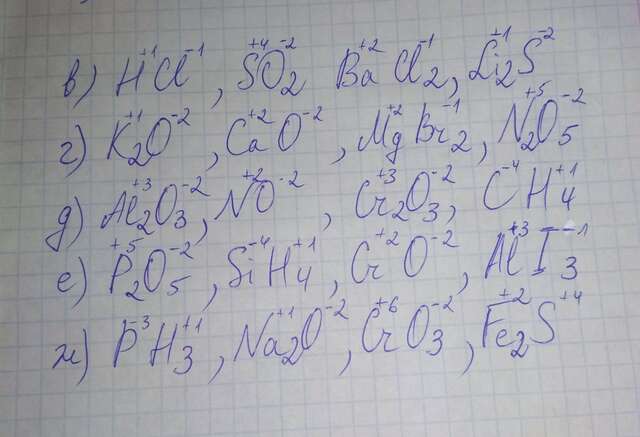 в) H⁺¹Cl⁻¹, S⁺⁴O₂⁻² Ba⁺²Cl₂⁻¹, Li₂⁺¹S⁻²
г) K₂⁺¹O⁻², Ca⁺²O⁻², Mg⁺²Br₂⁻¹, N₂⁺⁵O₅⁻²
д) Al₂⁺³O₃⁻², N⁺²O⁻², Cr₂⁺³O₃⁻², C⁻⁴H₄⁺¹
е) P₂⁺⁵O₅⁻², Si⁻⁴H₄⁺¹, Cr⁺²O⁻², Al⁺³I₃⁻¹
ж) P⁻³H₃⁺¹, Na₂⁺¹O⁻², Cr⁺⁶O₃⁻², Fe₂⁺²S⁺⁴